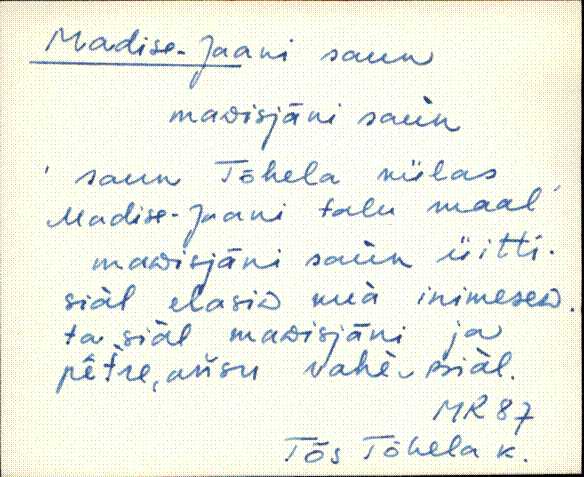 Madise-Jaani saun
maᴅisjāni saùn
'saun Tõhela külas
Madise-Jaani talu maal'
maᴅisjāni saùn üitti.
siàl elasiᴅ muà inimeseᴅ.
ta siàl maᴅisjāni ja
vahè siàl.
MR 87
Tõs Tõhela k.